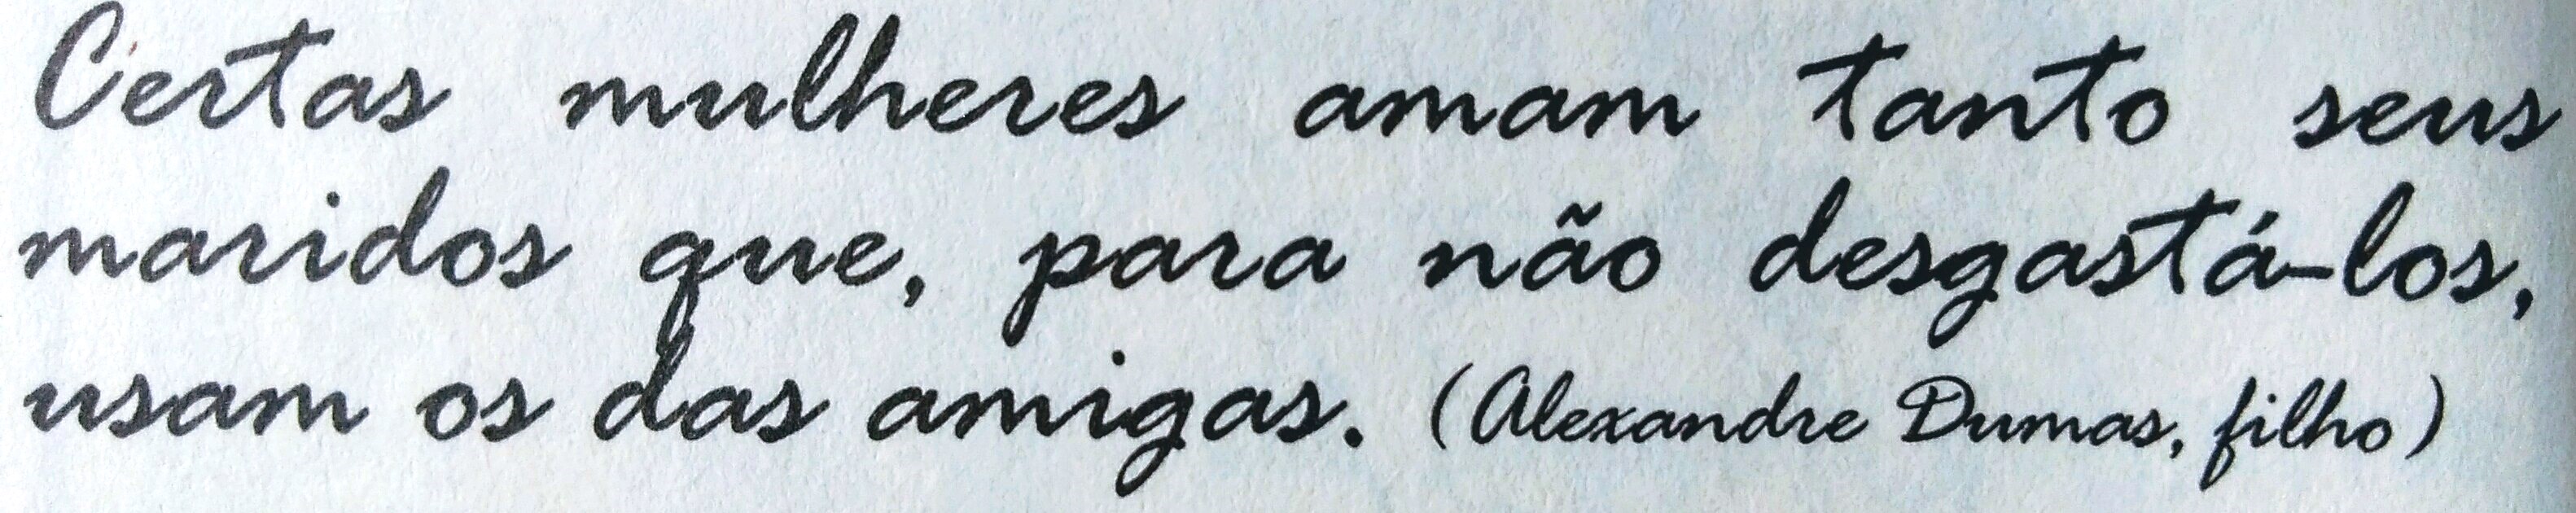 Certas mulheres amam tanto seus
maridos que, para não desgastá-los,
usam os das amigas. (Alexandre Dumas, filho)